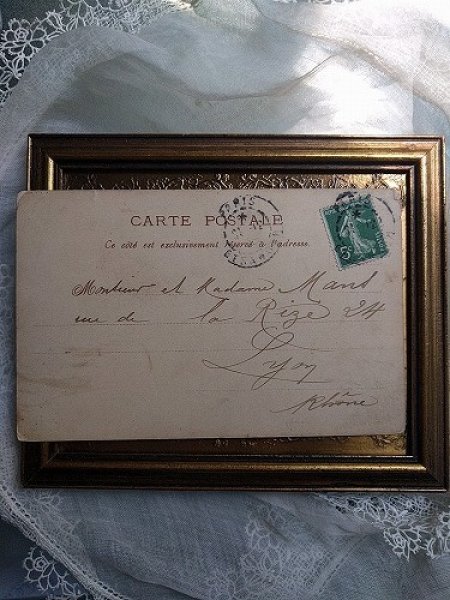 CARTE POSTALE
Ce côté est exclusivement réservé à l'adresse
PARIS
5c
Monsieur et Madame Mant
rue de la Rize 24
Lyon
Rhône